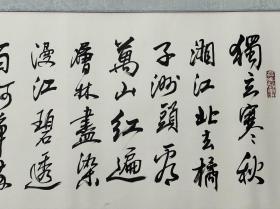 獨立寒秋
湘江北去橘
子洲頭看
萬山紅遍
層林盡染
漫江碧透
百舸爭流